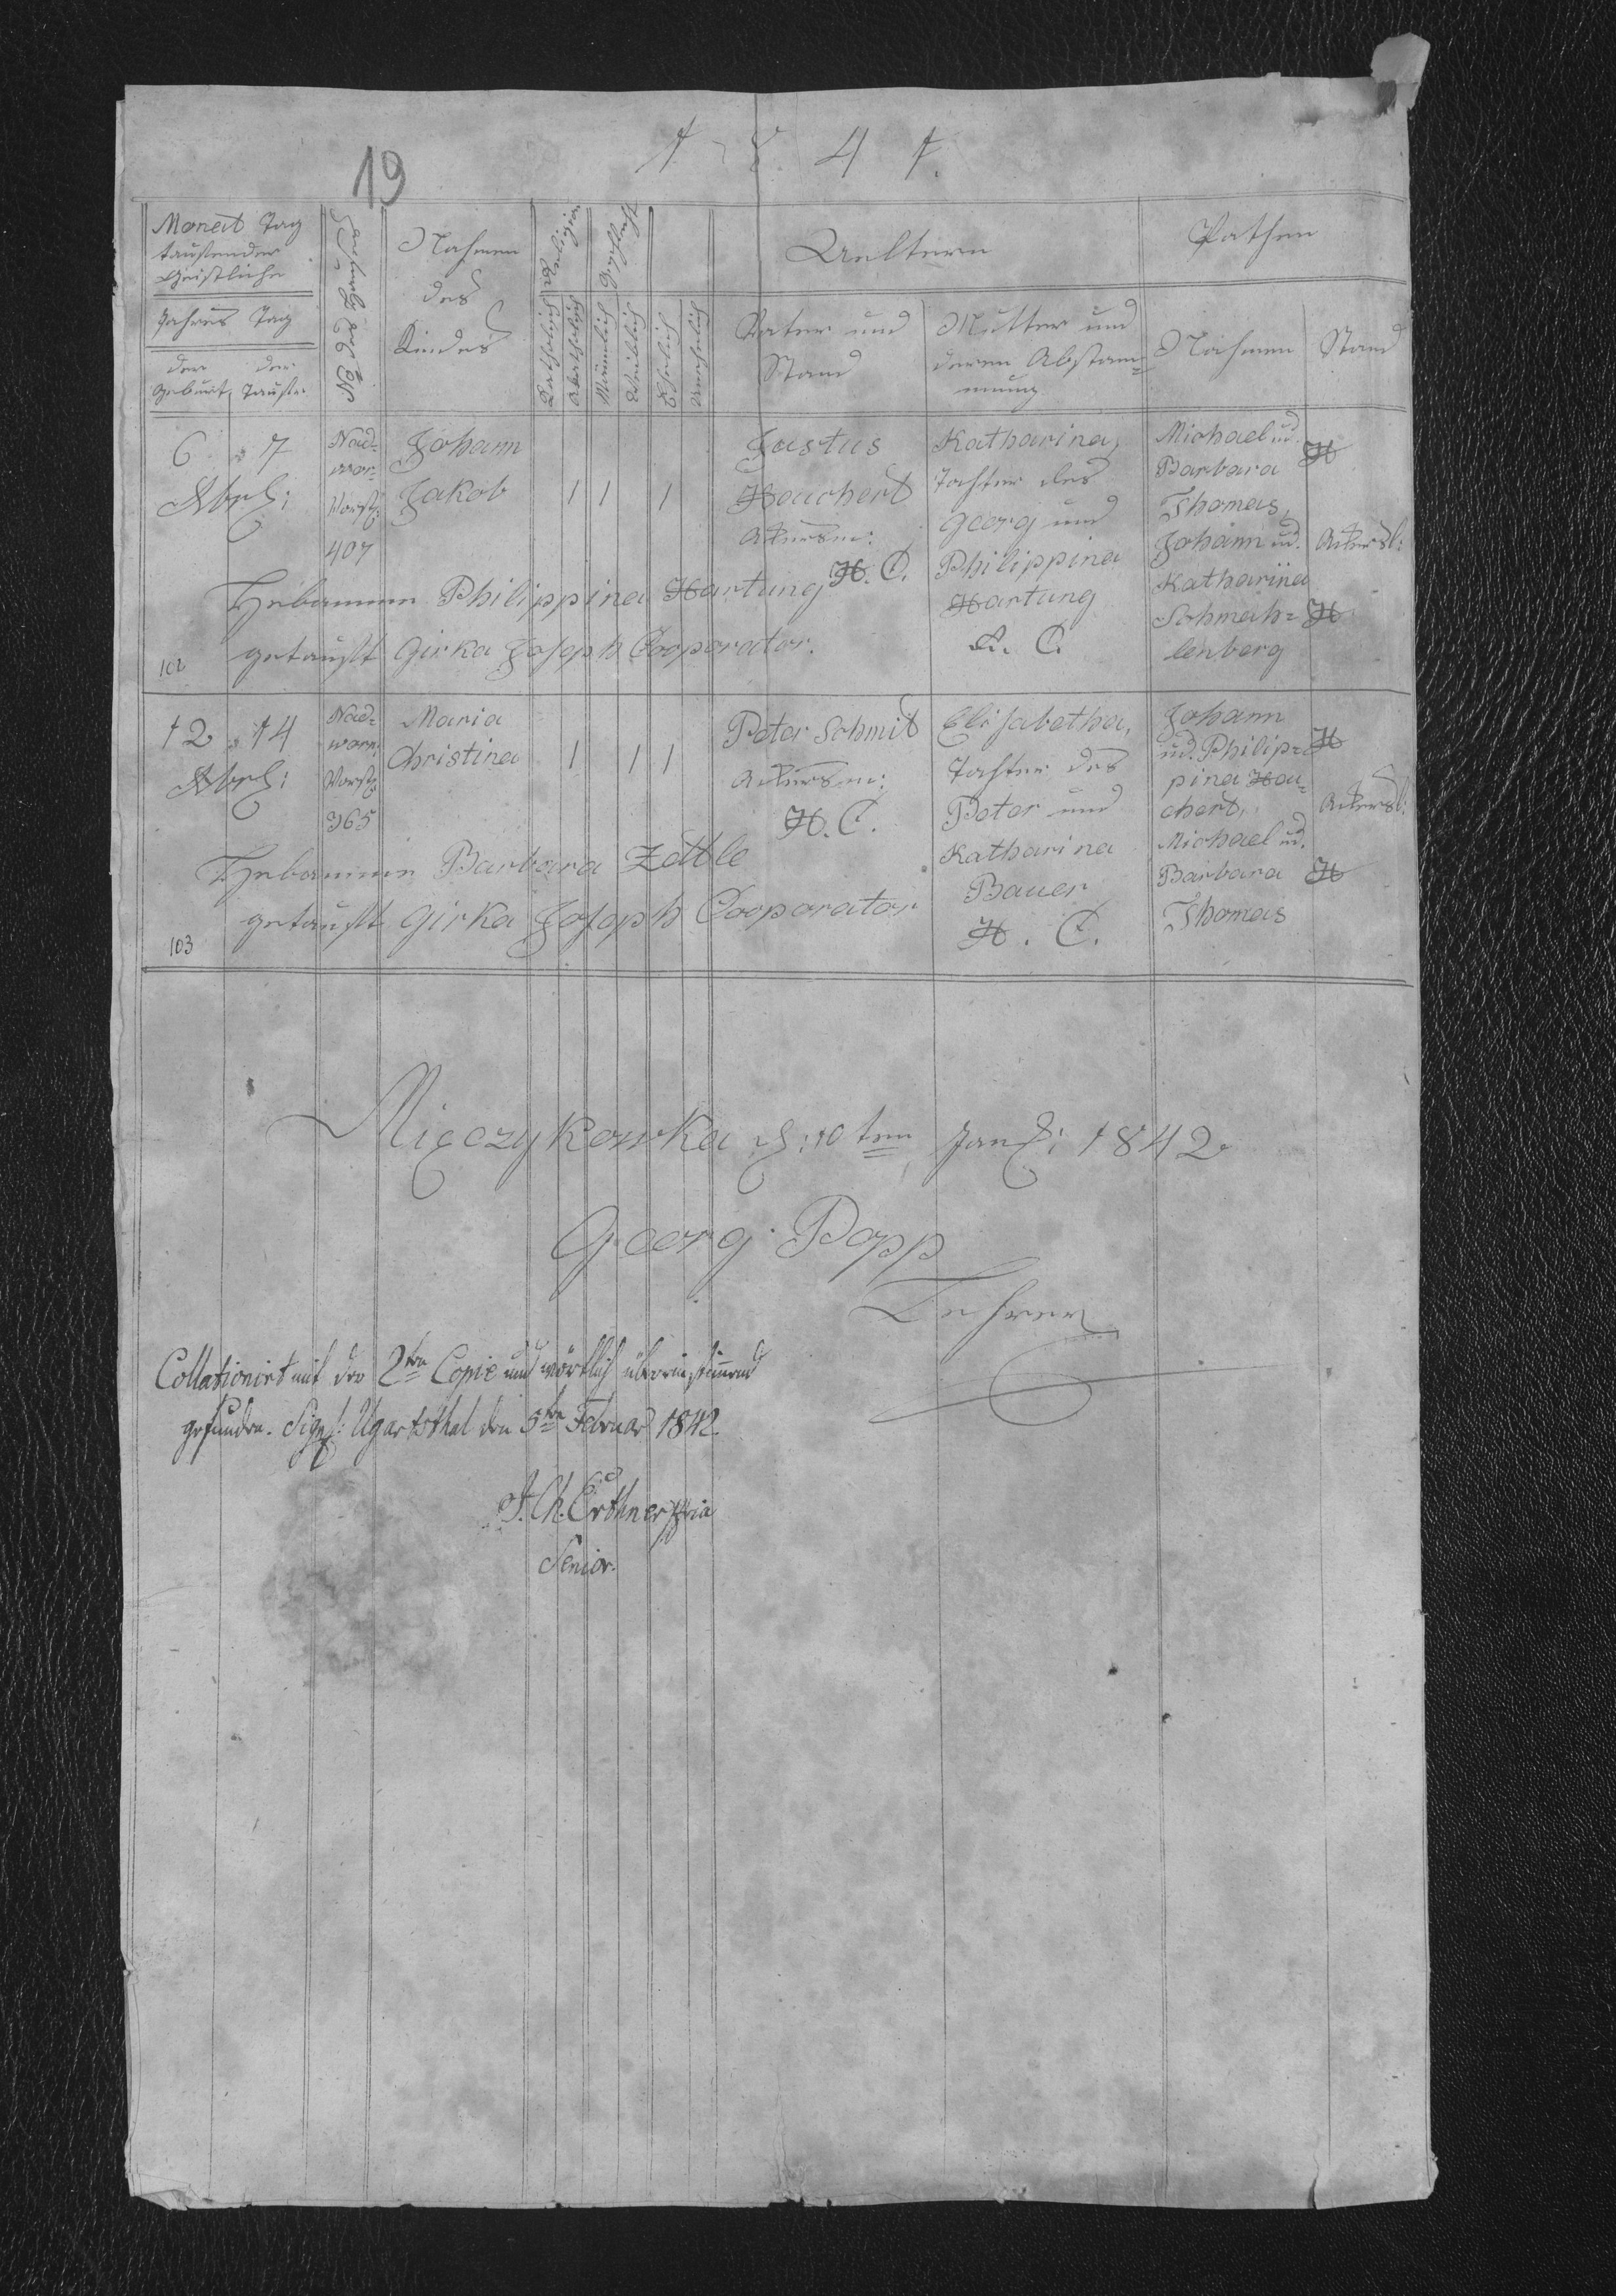 19
1841.
Monat Tag
taufender
Geistliche
Jahres Tag
der der
Geburt, Taufe.
No des Hauses
Nahmen
des
Kindes
Religion
Katholisch
Akatholisch
Geschlecht
Männlich
Weiblich
Ehelich
Unehelich
Aeltern
Vater und
Stand
Mutter und
deren Abstam=
mung
Pathen
Nahmen
Stand
6 7
Nad=
wor.
Vorst:
407
Johann
Jakob
1 1 1
Justus
Heuchert
Akersm:
H. C.
Katharina,
Tochter des
Georg und
Philippina
Hartung
A. C.
Michael ud.
Barbara
Thomas,
Johann ud.
Katharina
Schmah=
lenberg
H
Akersl:
H
Hebamme Philippina Hartung
getauft Girka Joseph Cooporator.
102
12 14
Nad=
worn.
Vorst:
365
Maria
Christina
1 1 1
Peter Schmit
Akersm:
H. C.
Elisabetha,
Tochter des
Peter und
Katharina
Bauer
H. C.
Johann
ud. Philip=
pina Heu=
chert,
Michael ud.
Barbara
Thomas
H
Akersl:
H
Hebamme Barbara Zettle
getauft Girka Joseph Cooporator
103
Mięczykowka d: 10ten Jan: 1842
Georg Popp
Lehrer
Collationirt mit der 2ten Copie und wörtlich übereinstimend
gefunden. Sign: Ugartsthal den 5ten Februar 1842.
Senior.